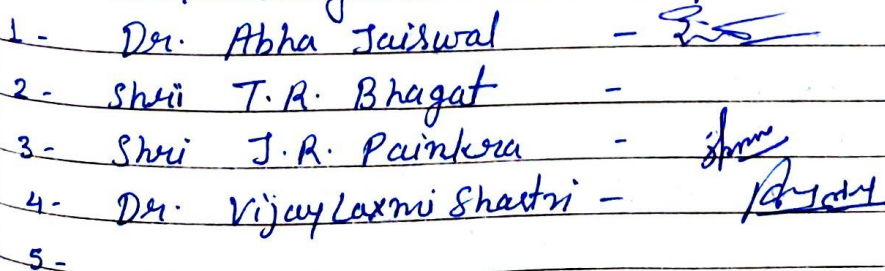 1 - Dr. Abha Jaiswal -
2 - Shri T. R. Bhagat -
3 - Shri J. R. Painkra -
4 - Dr. Vijay Laxmi Shastri -
5 -